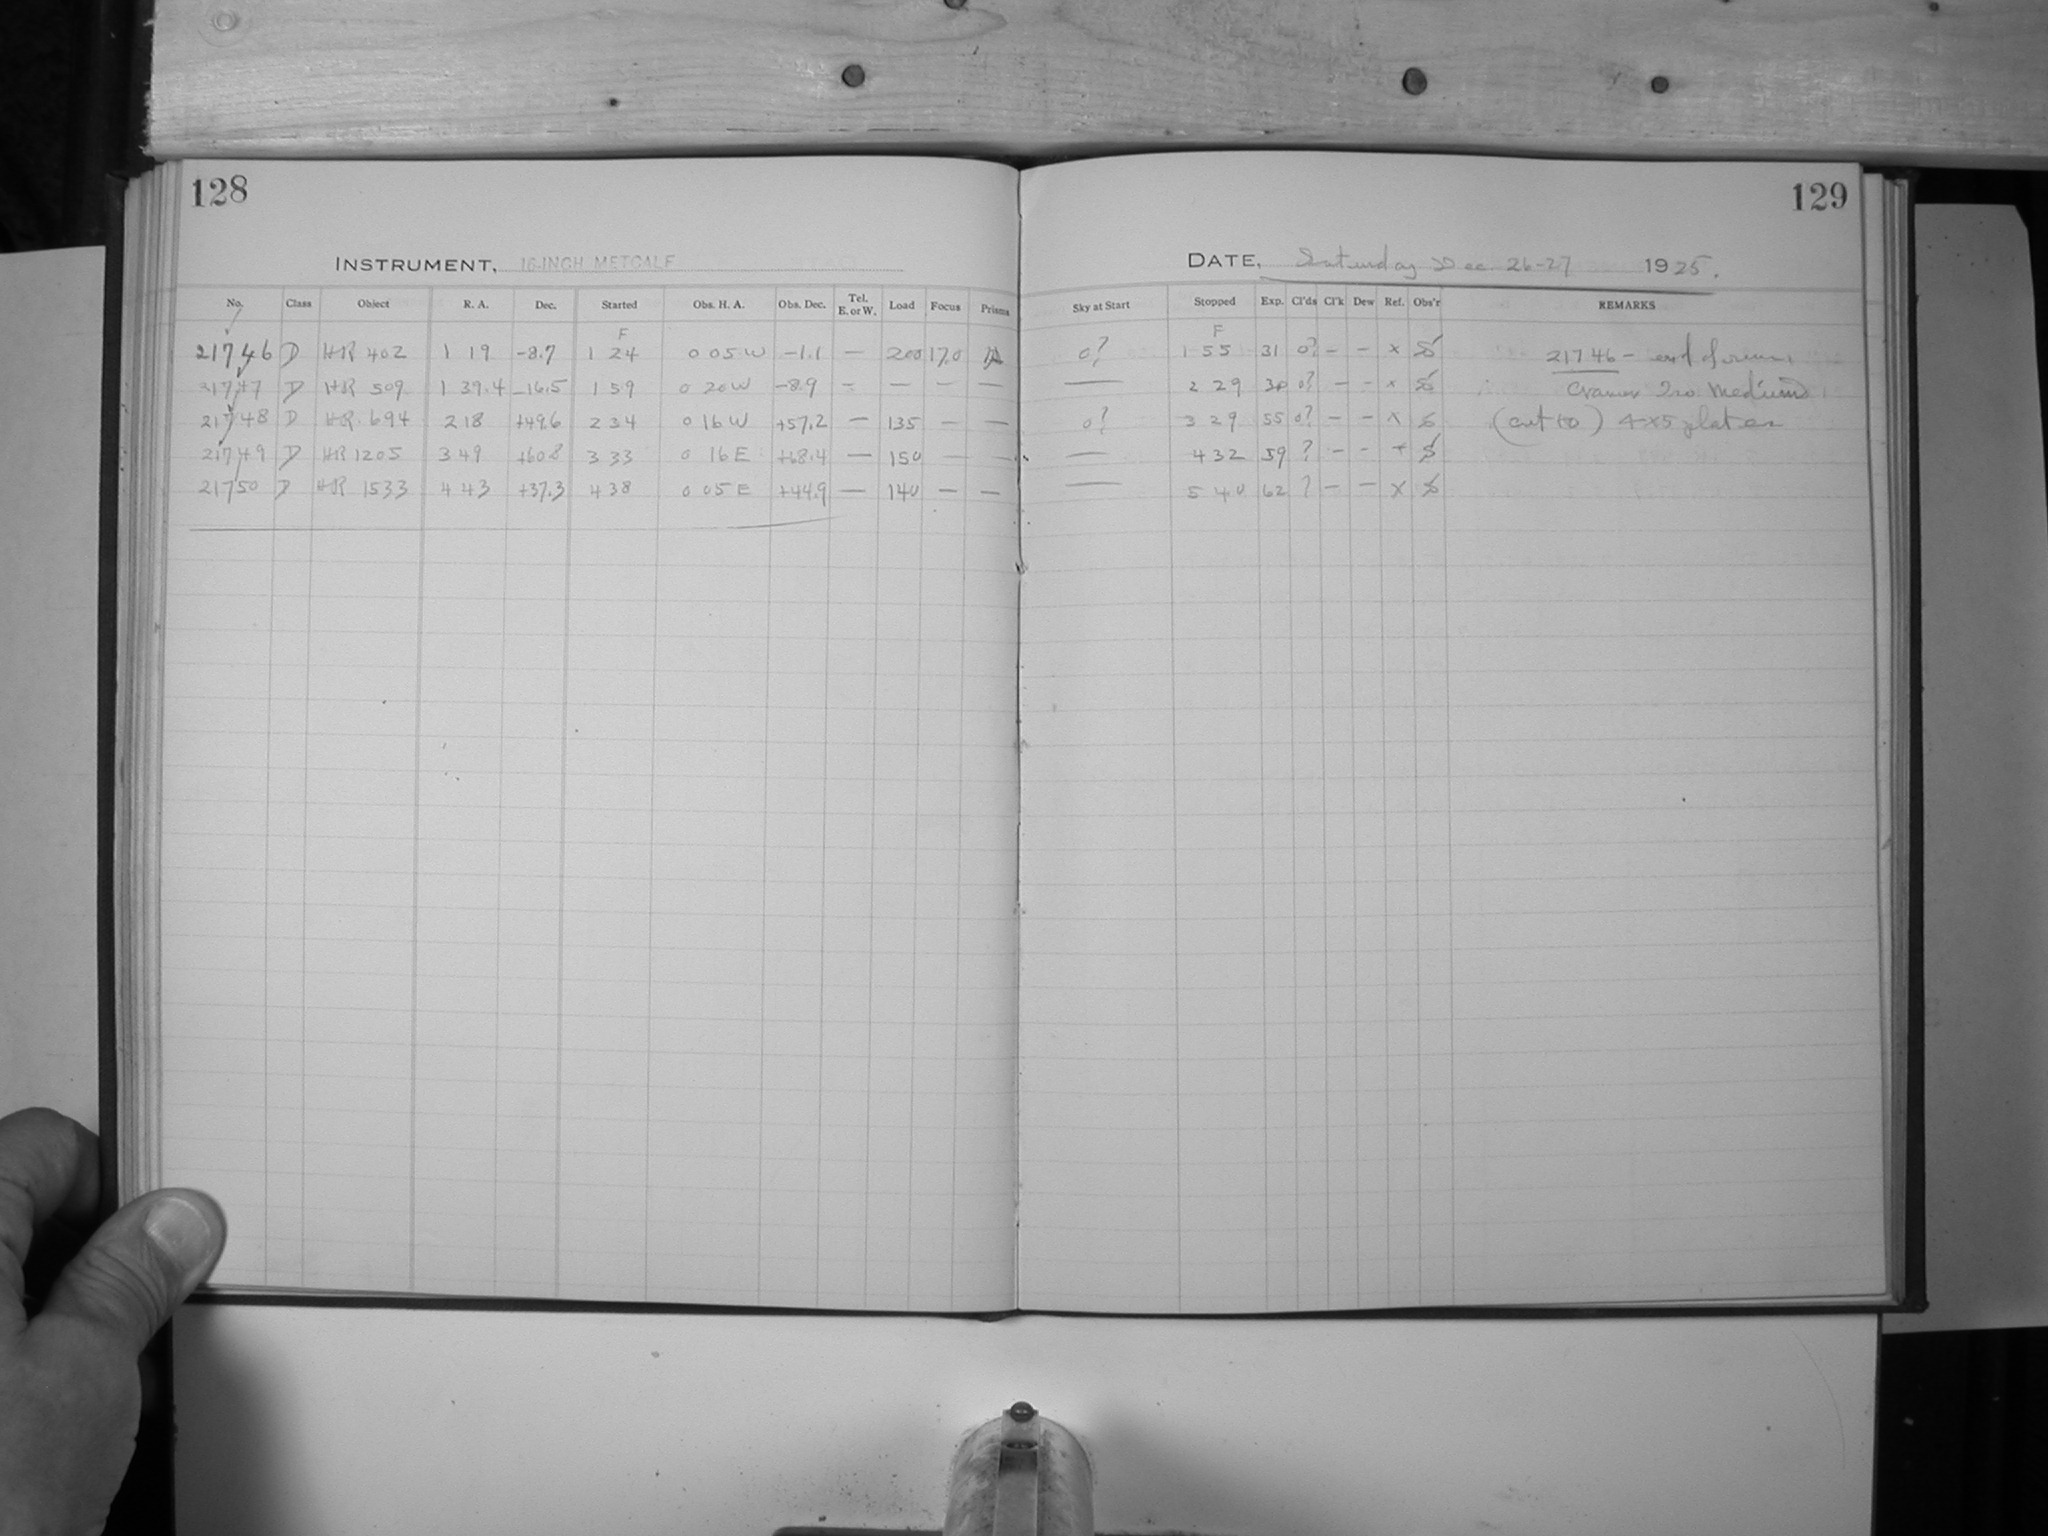 128
INSTRUMENT, 16-INCH METCALF
No. Class Object R. A. Dec. Started Obs. H. A. Obs. Dec. Tel. E. or W. Load Focus Prisms
F
21746 D HR 402 1 19 -8.7 1 24 0 05 W -1.1 — 200 17.0
21747 D HR 509 1 39.4 -16.5 1 59 0 20 W -8.9 — — — —
21748 D HR 694 2 18 +49.6 2 34 0 16 W +57.2 — 135 — —
21749 D HR 1205 3 49 +60.8 3 33 0 16 E +68.4 — 150 — —
21750 D HR 1533 4 43 +37.3 4 38 0 05 E +44.9 — 140 — —
129
DATE, Saturday Dec 26-27 1925.
Sky at Start Stopped Exp. Cl'ds Cl'k Dew Ref. Obs'r REMARKS
F
0? 1 55 31 0? — — x 21746 - end of
— 2 29 30 0? — — x Cramer Iso Medium
0? 3 29 55 0? — — x (cut to) 4x5 plates
— 4 32 59 ? — — x
— 5 40 62 ? — — x